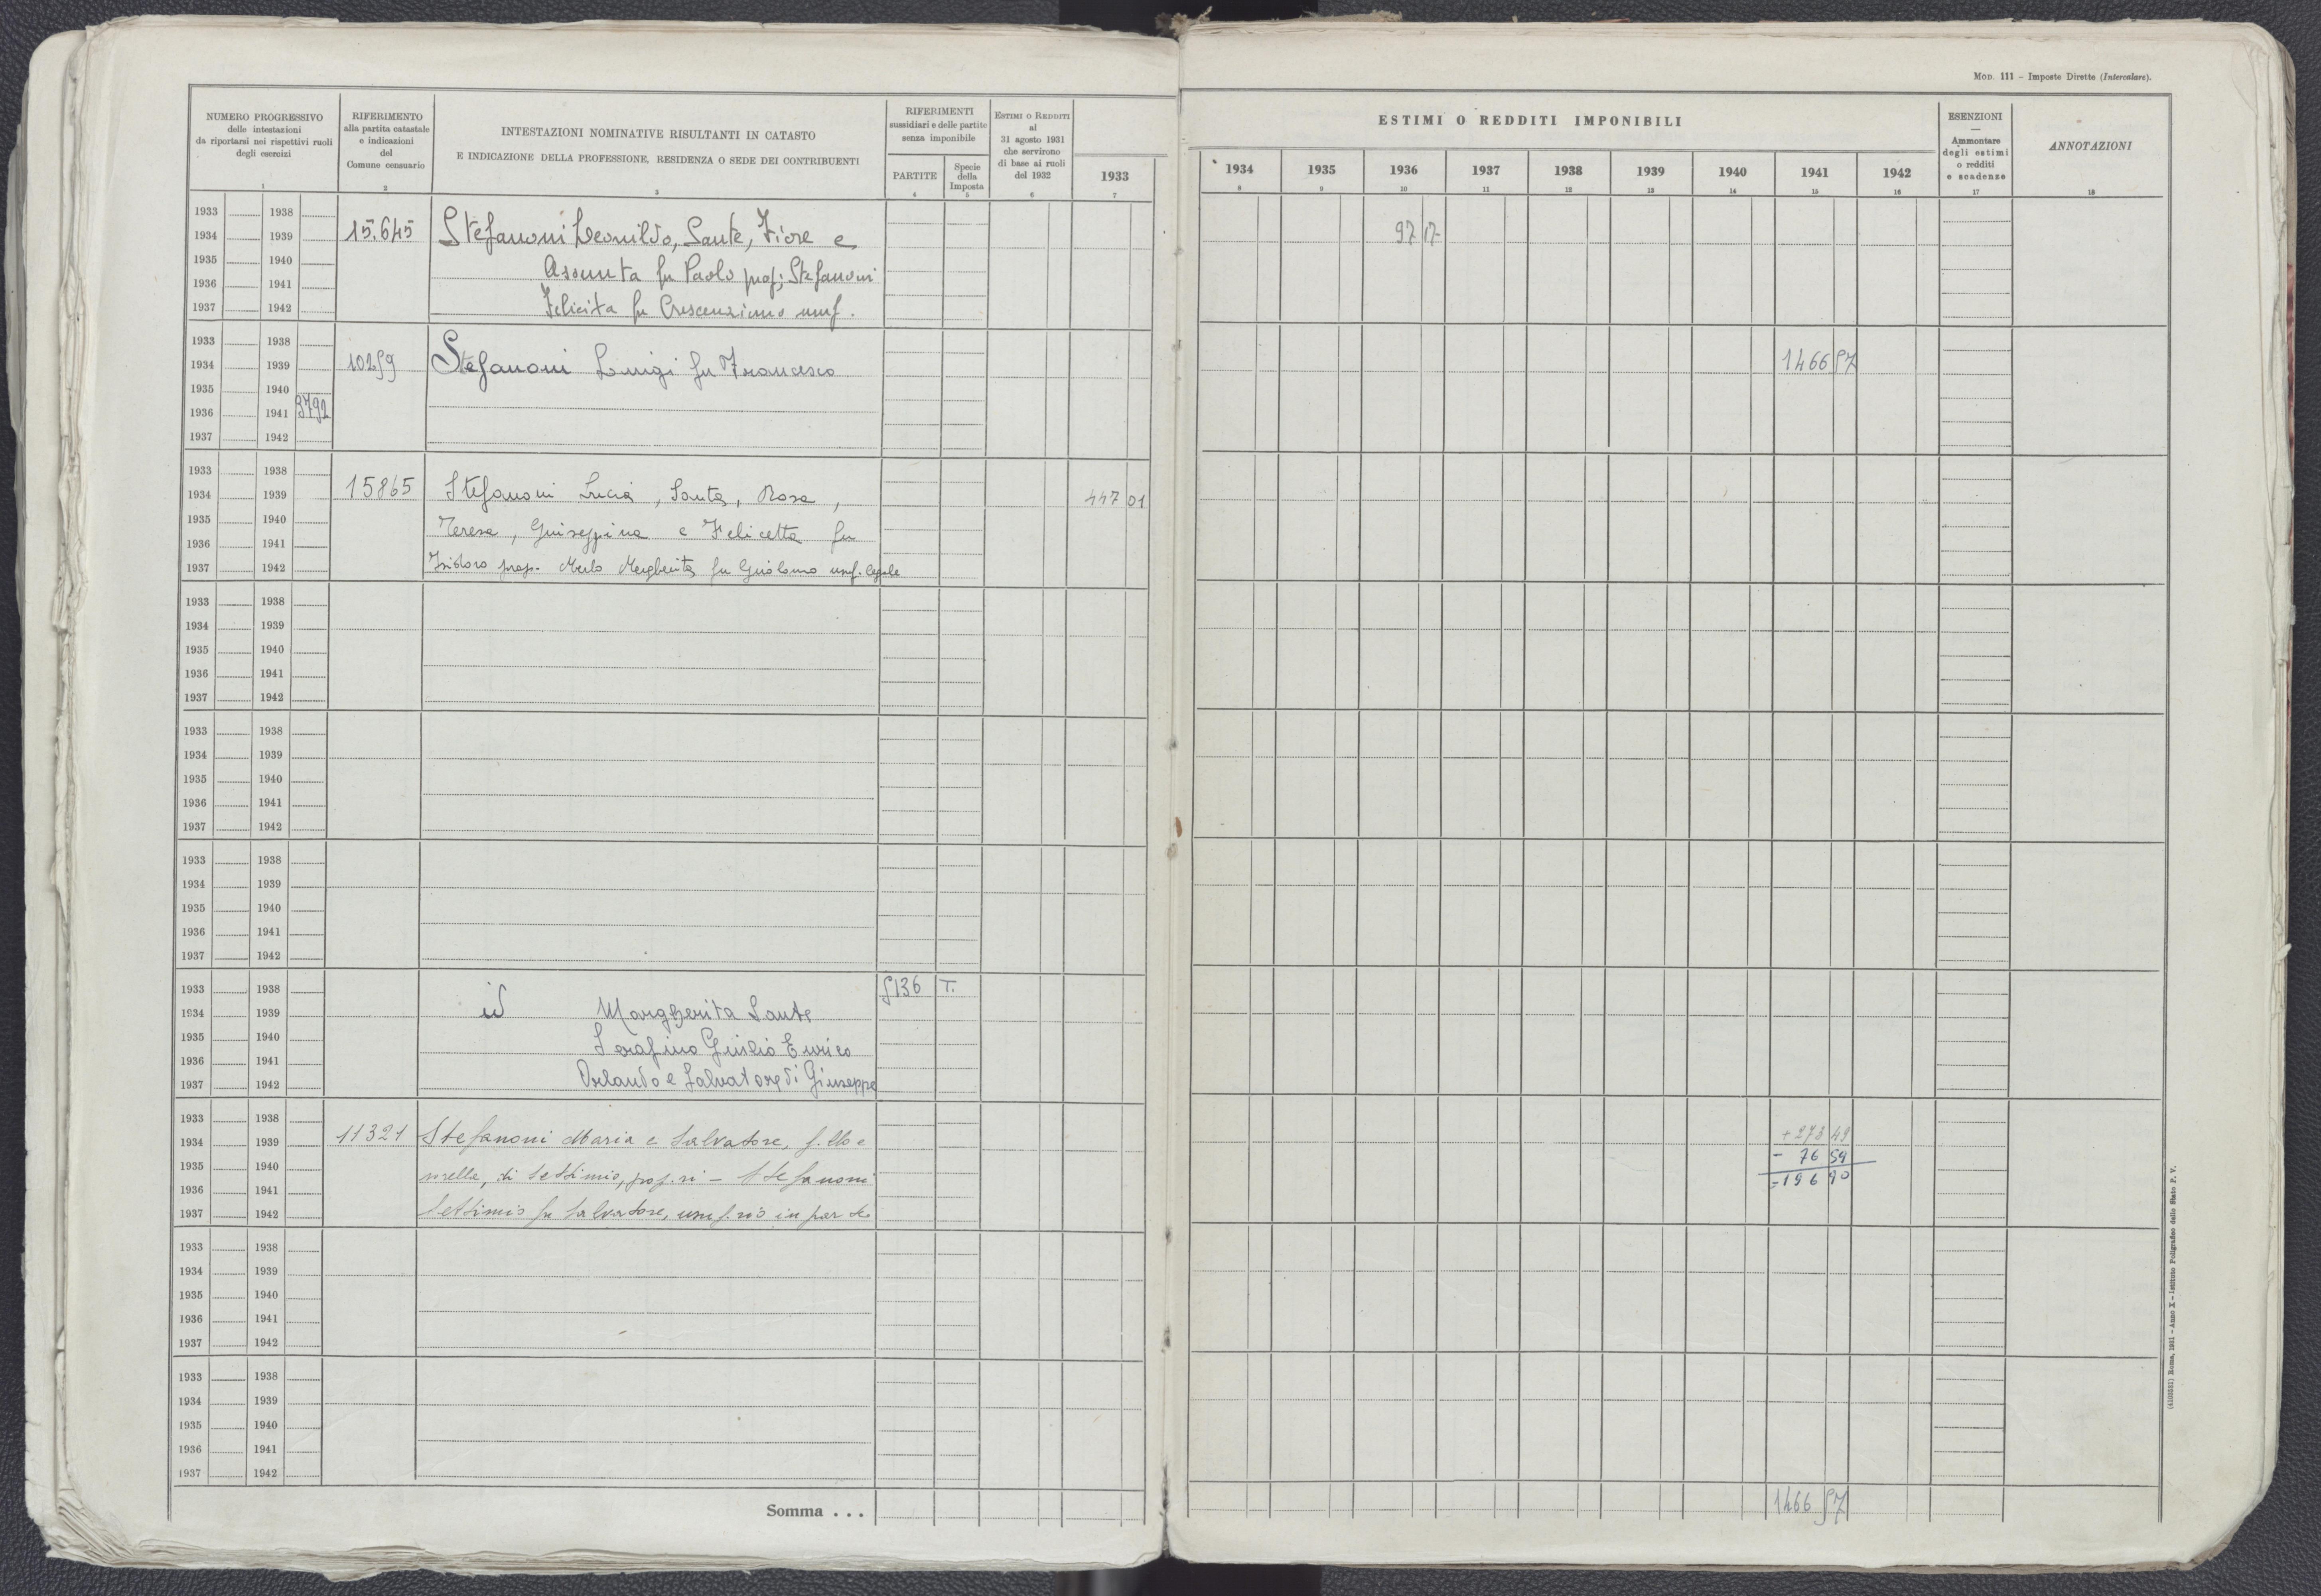 MOD. 111 – Imposte Dirette (Intercalare).
NUMERO PROGRESSIVO
delle intestazioni
da riportarsi nei rispettivi ruoli
degli esercizi
1
RIFERIMENTO
alla partita catastale
e indicazioni
del
Comune censuario
2
INTESTAZIONI NOMINATIVE RISULTANTI IN CATASTO
E INDICAZIONE DELLA PROFESSIONE, RESIDENZA O SEDE DEI CONTRIBUENTI
3
RIFERIMENTI
sussidiari e delle partite
senza imponibile
PARTITE
4
Specie
della
Imposta
5
ESTIMI O REDDITI
al
31 agosto 1931
che servirono
di base ai ruoli
del 1932
6
1933
7
ESTIMI O REDDITI IMPONIBILI
1934 1935 1936 1937 1938 1939 1940 1941 1942
8 9 10 11 12 13 14 15 16
ESENZIONI
—
Ammontare
degli estimi
o redditi
e scadenze
17
ANNOTAZIONI
18
1933 1938
1934 1939 15.645 Stefanoni Leonildo, Sante, Fiore e 97 17
1935 1940 Assunta fu Paolo prop; Stefanoni
1936 1941
1937 1942 Felicita fu Crescenzino usuf.
1933 1938
1934 1939 10259 Stefanoni Luigi fu Francesco 1466 57
1935 1940
1936 1941 3792
1937 1942
1933 1938
1934 1939 15865 Stefanoni Lucia, Santa, Rosa, 447 01
1935 1940 Teresa, Guiseppina e Felicetta fu
1936 1941
1937 1942 Isidoro prop. Merlo Margherita fu Girolamo usuf. legale
1933 1938
1934 1939
1935 1940
1936 1941
1937 1942
1933 1938
1934 1939
1935 1940
1936 1941
1937 1942
1933 1938
1934 1939
1935 1940
1936 1941
1937 1942
1933 1938 5136 T.
1934 1939 id Margherita Sante
1935 1940 Serafino Giulio Enrico
1936 1941
1937 1942 Orlando e Salvatore di Giuseppe
1933 1938
1934 1939 11321 Stefanoni Maria e Salvatore, f.llo e + 273 49
1935 1940 sorella, di Settimio, prop.ri – Stefanoni - 76 59
1936 1941 = 196 90
1937 1942 Settimio fu Salvatore, usuf.rio in parte
1933 1938
1934 1939
1935 1940
1936 1941
1937 1942
1933 1938
1934 1939
1935 1940
1936 1941
1937 1942
Somma . . . 1466 57
(4103281) Roma, 1931 – Anno X – Istituto Poligrafico dello Stato P. V.